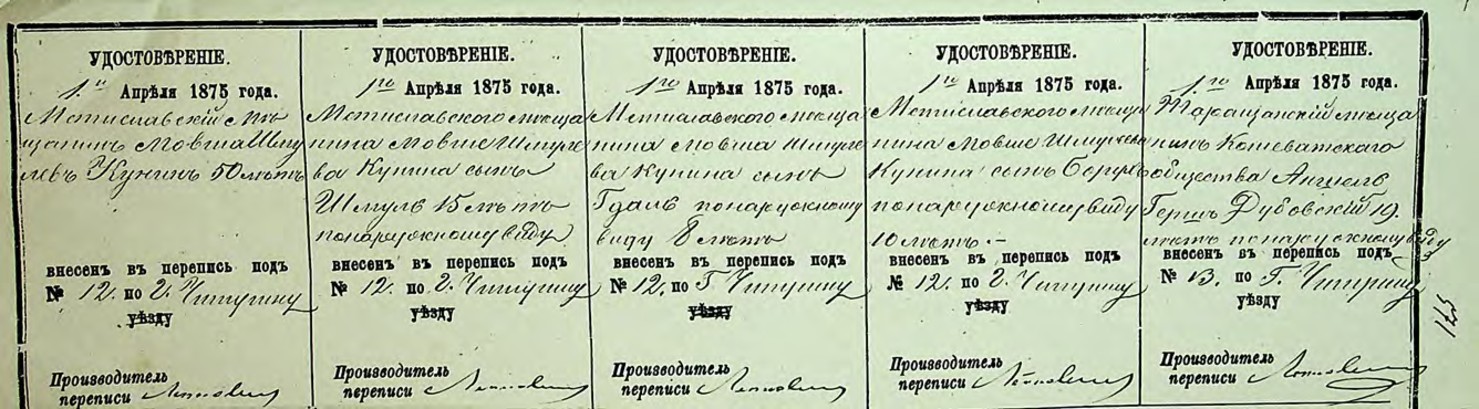 УДОСТОВѢРЕНІЕ.
1го Апрѣля 1875 года.
Мстиславскій мѣ
щанинъ Мовша Шму
левъ Кунинъ 50 лѣтъ
внесенъ въ перепись подъ
№ 12. по г. Чигирину
уѣзду
Производитель
переписи
УДОСТОВѢРЕНІЕ.
1го Апрѣля 1875 года.
Мстиславского мѣща
нина Мовше Шмуле
ва Кунина сынъ
Шмуль 15 лѣтъ
понаружному виду
внесенъ въ перепись подъ
№ 12. по г. Чигирину
уѣзду
Производитель
переписи
УДОСТОВѢРЕНІЕ.
1го Апрѣля 1875 года.
Мстиславского мѣща
нина Мовша Шмуле
ва Кунина сынъ
Гдаль понаружному
виду 8 лѣтъ
внесенъ въ перепись подъ
№ 12. по Г. Чигирину
уѣзду
Производитель
переписи
УДОСТОВѢРЕНІЕ.
1го Апрѣля 1875 года.
Мстиславского мѣща
нина Мовше Шмулева
Кунина сынъ Борух
понаружному виду
10 лѣтъ. -
внесенъ въ перепись подъ
№ 12. по г. Чигирину
уѣзду
Производитель
переписи
УДОСТОВѢРЕНІЕ.
1го Апрѣля 1875 года.
Таращанскій мѣща
нинъ Кошеватскаго
общества Аншель
Гершъ Дубовскій 19.
лѣтъ понаружному виду
внесенъ въ перепись подъ
№ 13. по Г. Чигирину
уѣзду
Производитель
переписи